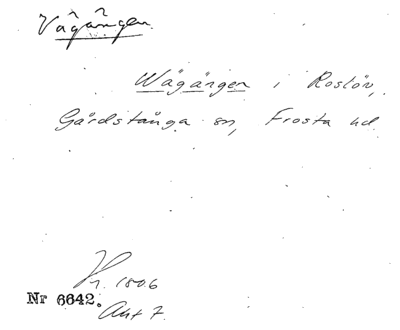 Vågången
Wågången i Roslöv,
Gårdstånga sn, Frosta hd.
1806
Nr 6642.
Akt 7.